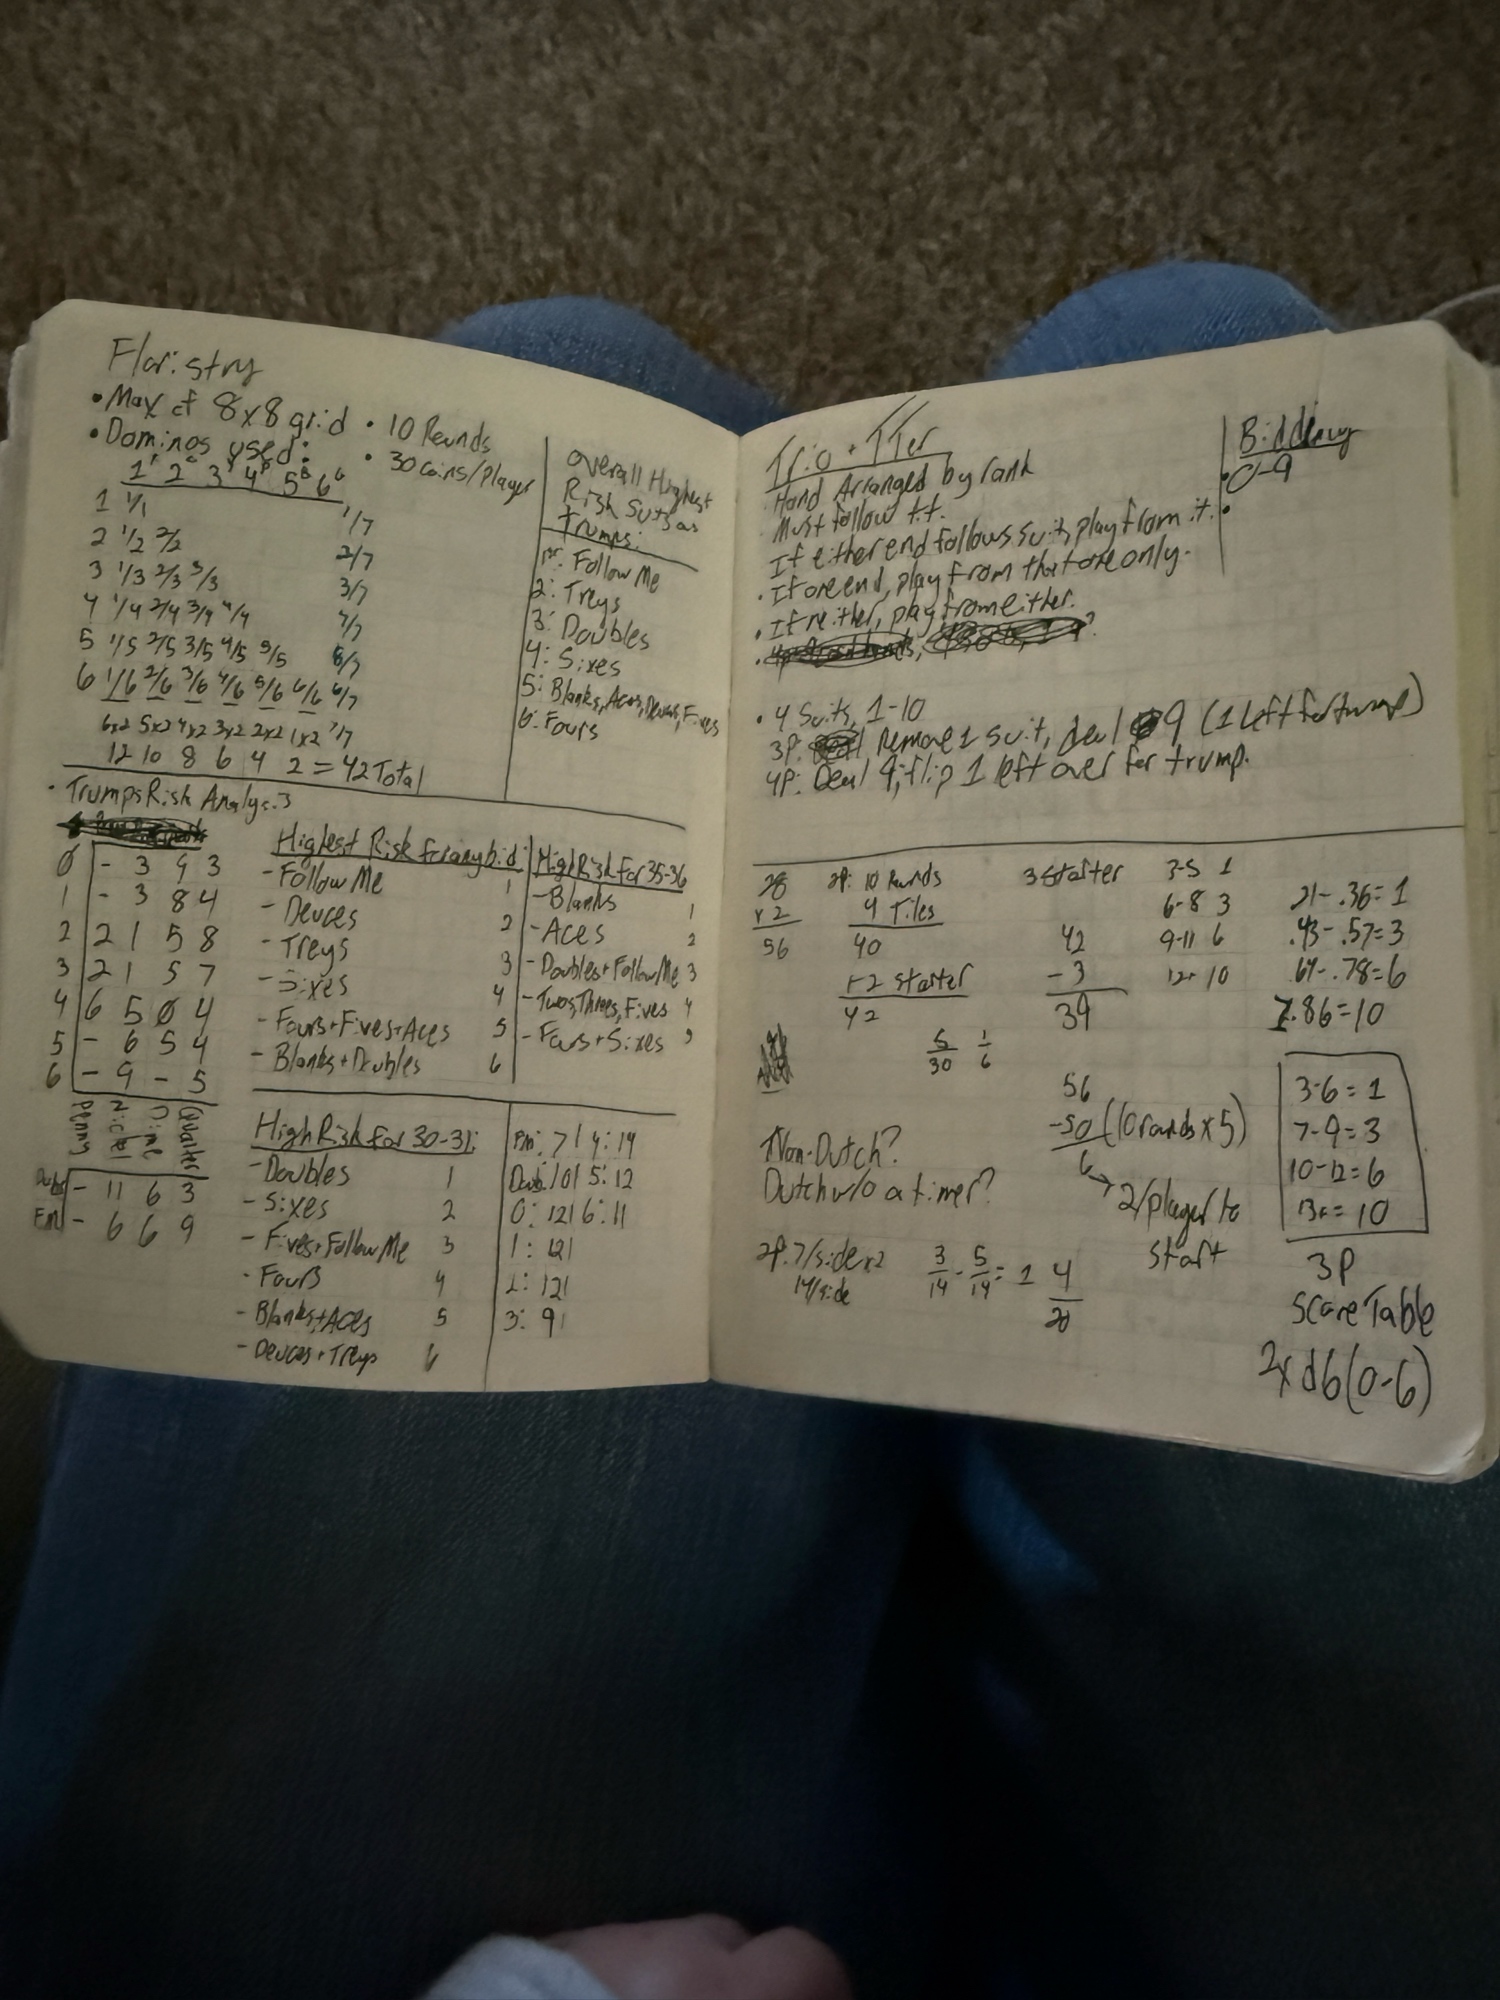 Floristry
• Max of 8x8 grid
• Dominos used:
• 10 Rounds
• 30 coins/Player
1 2 3 4 5 6
1 1/1 1/7
2 1/2 2/2 2/7
3 1/3 2/3 3/3 3/7
4 1/4 2/4 3/4 4/4 4/7
5 1/5 2/5 3/5 4/5 5/5 5/7
6 1/6 2/6 3/6 4/6 5/6 6/6 6/7
6x2 5x2 4x2 3x2 2x2 1x2 7/7
12 10 8 6 4 2 = 42 Total
Overall Highest
Risk Suits as
trumps:
1: Follow Me
2: Treys
3: Doubles
4: Sixes
5: Blanks, Aces, Deuces, Fives
6: Fours
• Trumps Risk Analysis
0 - 3 9 3
1 - 3 8 4
2 2 1 5 8
3 2 1 5 7
4 6 5 0 4
5 - 6 5 4
6 - 9 - 5
Penny Nickel Dime Quarter
Dubs - 11 6 3
F.M. - 6 6 9
Highest Risk for any bid
- Follow Me 1
- Deuces 2
- Treys 3
- Sixes 4
- Fours+Fives+Aces 5
- Blanks+Doubles 6
High Risk for 35-36
- Blanks 1
- Aces 2
- Doubles+Follow Me 3
- Twos, Threes, Fives 4
- Fours+Sixes 5
High Risk for 30-31:
- Doubles 1
- Sixes 2
- Fives+Follow Me 3
- Fours 4
- Blanks+Aces 5
- Deuces+Treys 6
F.M: 7 | 4: 14
Doub: 10 | 5: 12
0: 12 | 6: 11
1: 12 |
2: 12 |
3: 9 |
Trio + TTer
Hand Arranged by rank
Must follow t.t.
If either end follows suit, play from it.
• If one end, play from that one only.
• If neither, play from either.
Bidding
• 0-9
•
• 4 Suits, 1-10
3P: Remove 1 suit, deal 9 (1 left for trump)
4P: Deal 9, flip 1 left over for trump.
28
x2
56
2P: 10 Rounds
4 Tiles
40
+2 starter
42
3 Starter
42
-3
39
3-5 1
6-8 3
9-11 6
12+ 10
.21-.36=1
.43-.57=3
.64-.78=6
.86=10
5/30 1/6
Non-Dutch?
Dutch w/o a timer?
56
-50 (10 rounds x 5)
6
→ 2/player to
start
2P: 7/side x2
14/side
3/14 - 5/14 = 1
4/20
3-6 = 1
7-9 = 3
10-12 = 6
13+ = 10
3P
Score Table
2x d6 (0-6)